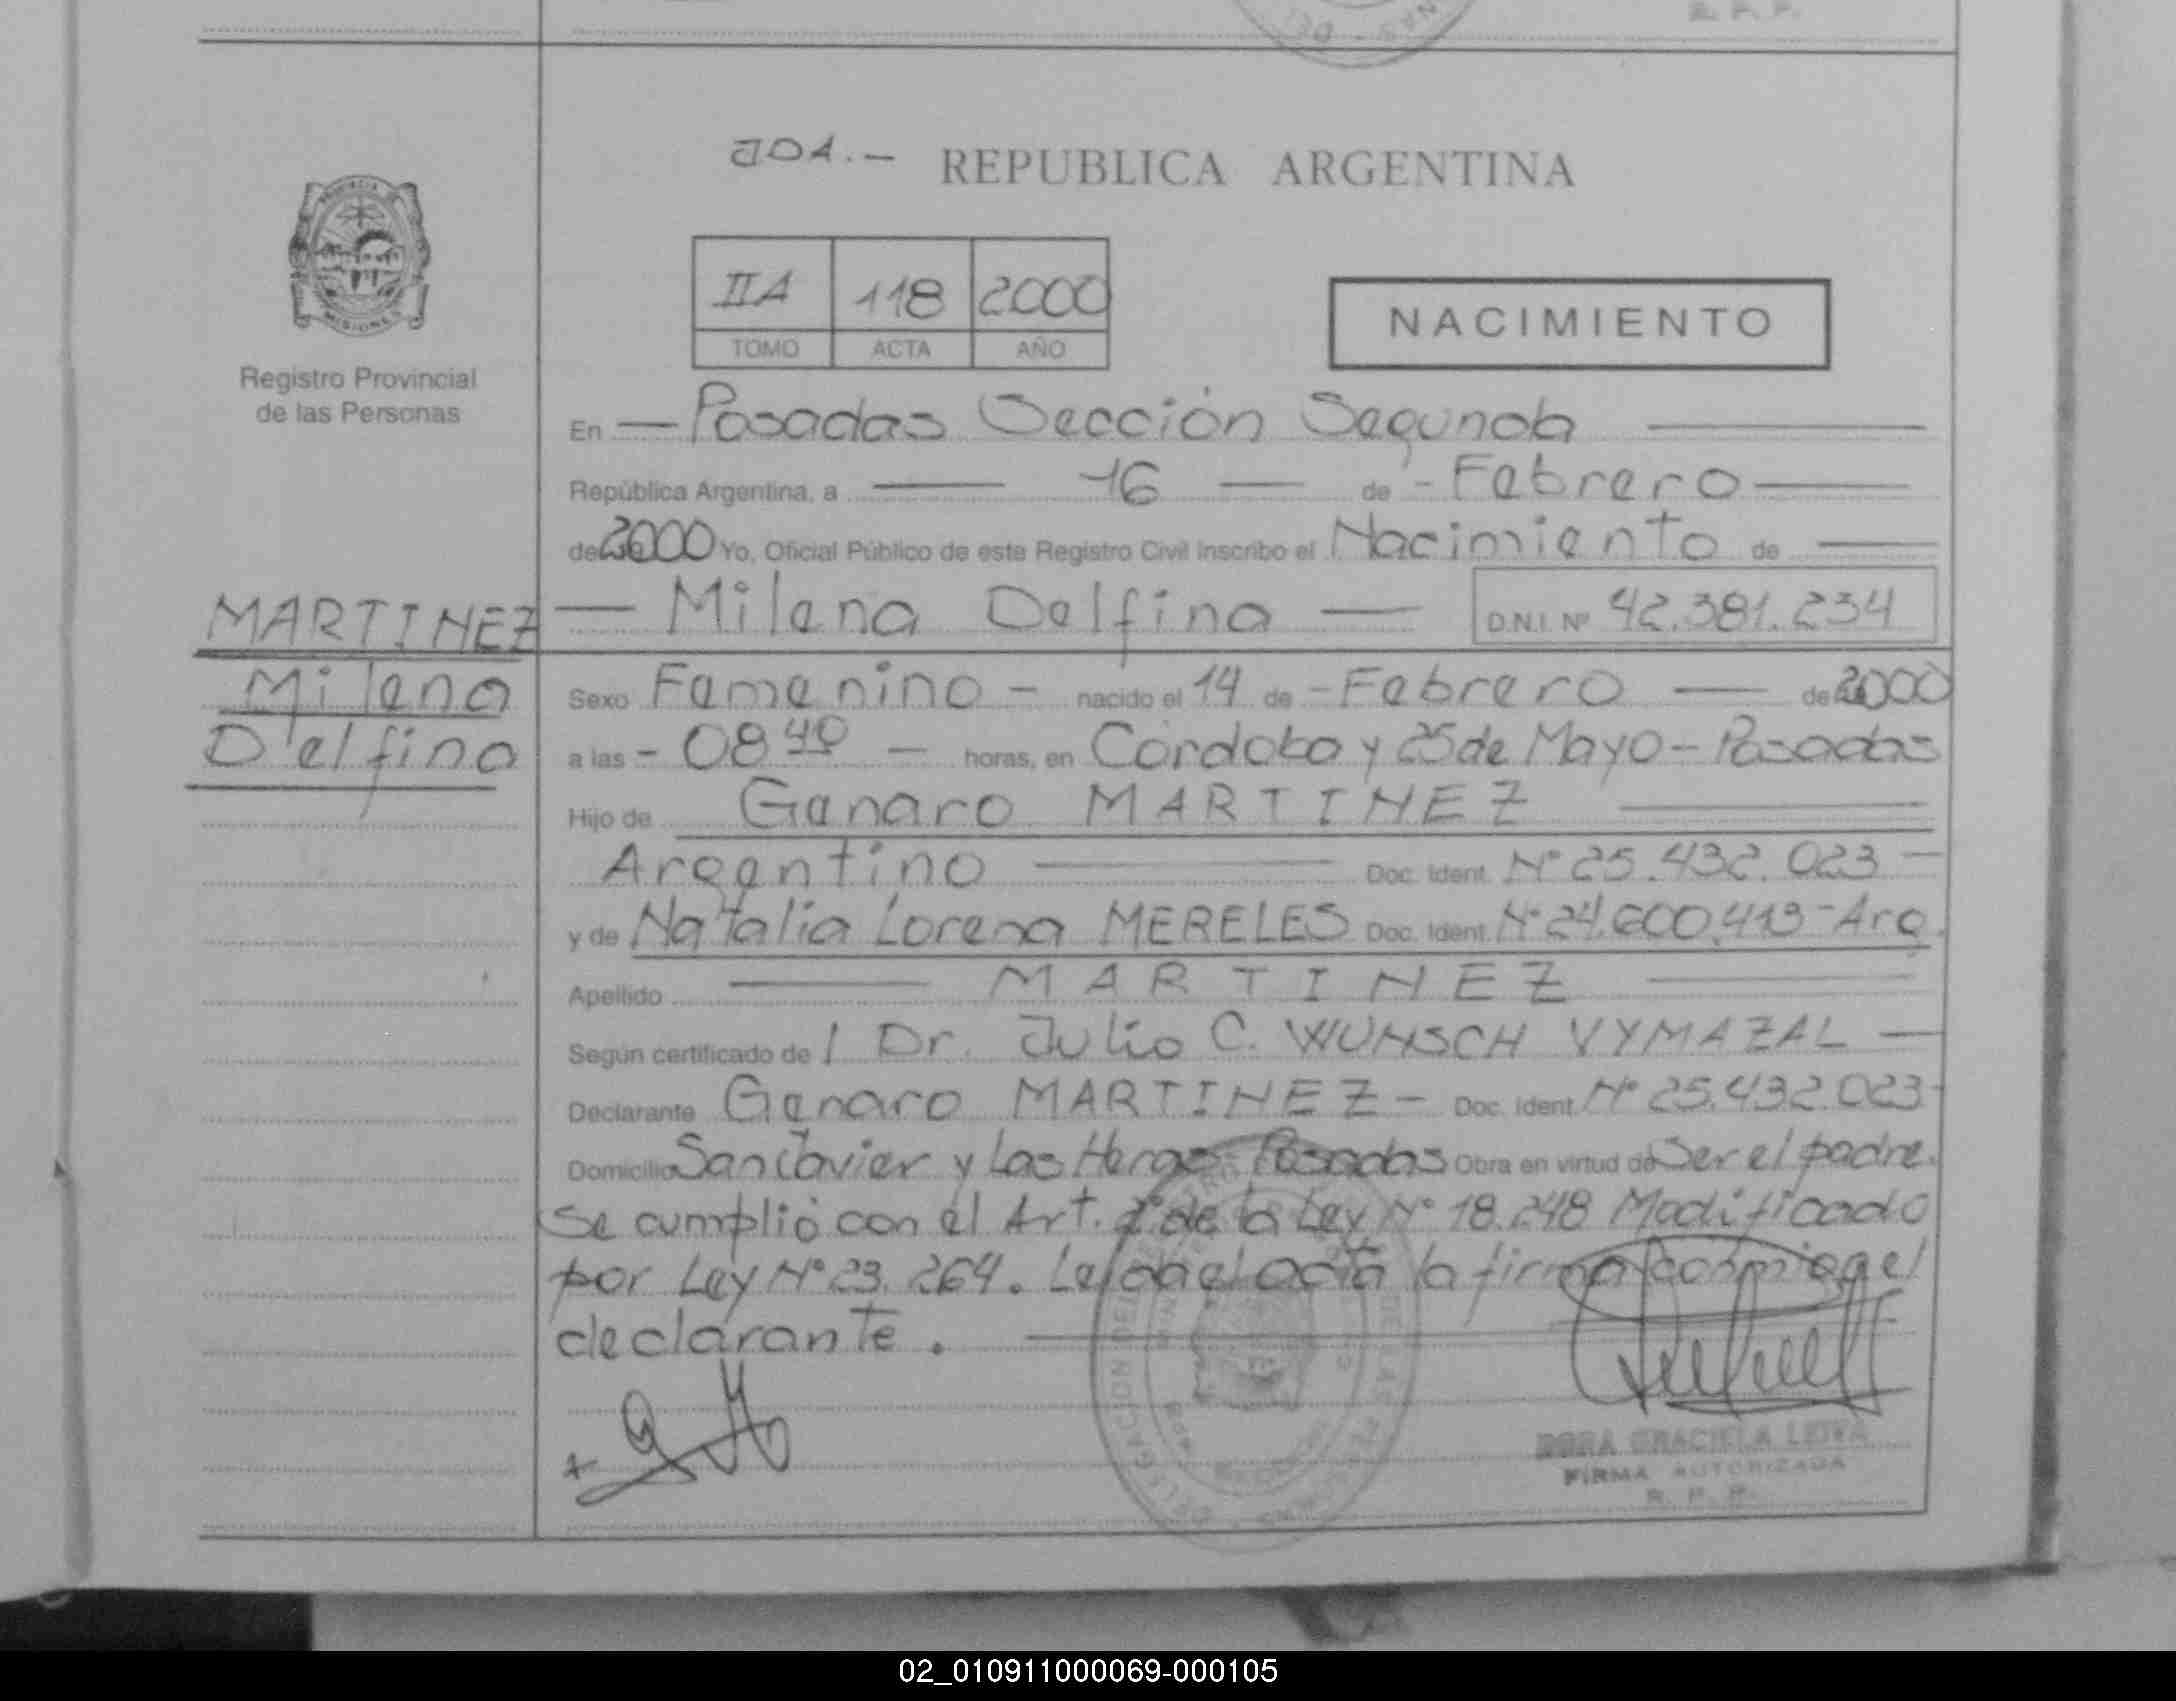 R. P. P.
JOA.- REPUBLICA ARGENTINA
PROVINCIA DE
MISIONES
Registro Provincial
de las Personas
IIA 118 2000
TOMO ACTA AÑO
NACIMIENTO
En Posadas Sección Segunda
República Argentina, a 16 de Febrero
de 2000 Yo, Oficial Público de este Registro Civil Inscribo el Nacimiento de
MARTINEZ Milena Delfina D.N.I. Nº 42.381.234
Milena Sexo Femenino - nacido el 14 de - Febrero de 2000
Delfina a las - 08 40 horas, en Córdoba y 25 de Mayo - Posadas
Hijo de Genaro MARTINEZ
Argentino Doc. Ident. Nº 25.432.023
y de Natalia Lorena MERELES Doc. Ident. Nº 24.600.413 - Arg.
Apellido MARTINEZ
Según certificado de l Dr. Julio C. WUNSCH VYMAZAL
Declarante Genaro MARTINEZ - Doc. Ident. Nº 25.432.023
Domicilio San Javier y Las Heras Posadas Obra en virtud de Ser el padre.
Se cumplió con el Art. 2º de la Ley Nº 18.248 Modificado
por Ley Nº 23.264. Leída el acta la firma conmigo el
declarante.
DORA GRACIELA LEIVA
FIRMA AUTORIZADA
R. P. P.
02_010911000069-000105